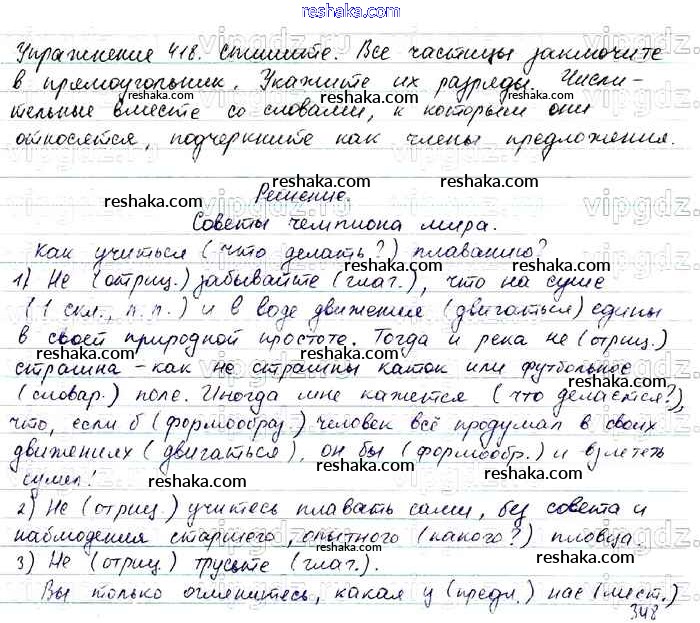 reshaka.com
Упражнение 418. Спишите. Все частицы заключите
в прямоугольник. Укажите их разряды. Числи-
тельные вместе со словами, к которым они
относятся, подчеркните как члены предложения.
Решение.
Советы чемпиона мира.
Как учиться (что делать?) плаванию?
1) Не (отриц.) забывайте (глаг.), что на суше
(1 скл., п.п.) и в воде движения (двигаться) едины
в своей природной простоте. Тогда и река не (отриц.)
страшна - как не страшны каток или футбольное
(словар.) поле. Иногда мне кажется (что делается?),
что, если б (формообраз.) человек всё продумал в своих
движениях (двигаться), он бы (формообр.) и взлететь
сумел!
2) Не (отриц.) учитесь плавать сами, без совета и
наблюдения старшего, опытного (какого?) пловца.
3) Не (отриц.) трусьте (глаг.).
Вы только оглянитесь, какая у (предл.) нас (мест.)
348